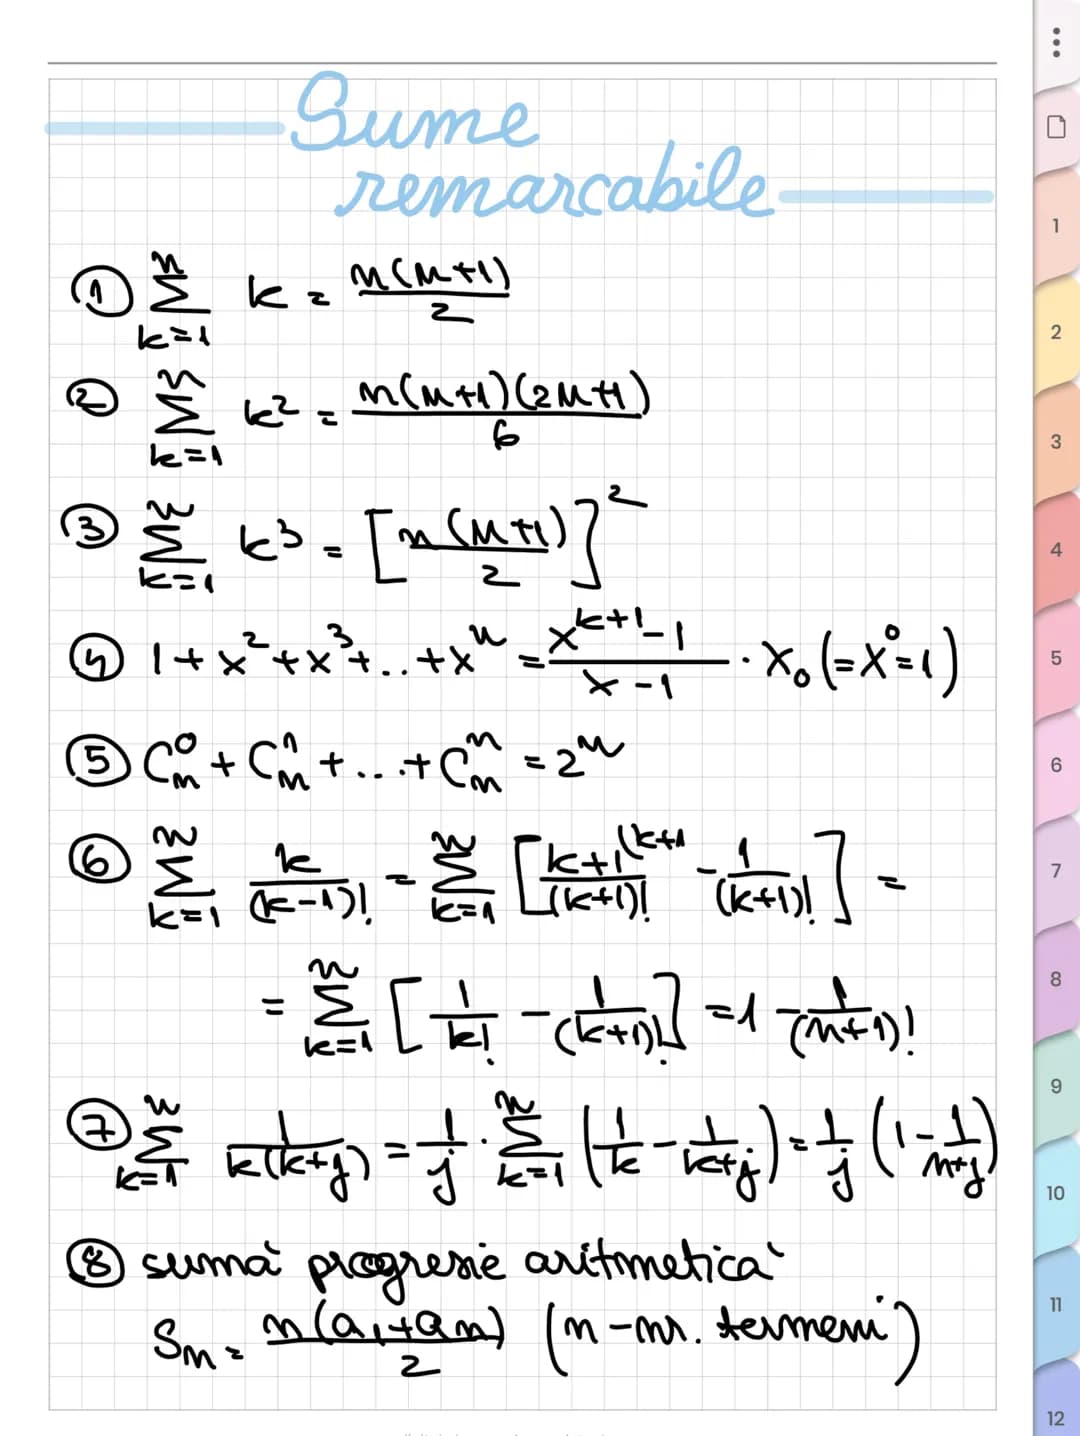 Sume
remarcabile
① \sum_{k=1}^{n} k = \frac{n(n+1)}{2}
② \sum_{k=1}^{n} k^2 = \frac{n(n+1)(2n+1)}{6}
③ \sum_{k=1}^{n} k^3 = \left[\frac{n(n+1)}{2}\right]^2
④ 1+x^2+x^3+..+x^n = \frac{x^{k+1}-1}{x-1} \cdot x_0 (=x^0=1)
⑤ C_n^0 + C_n^1 + ... + C_n^n = 2^n
⑥ \sum_{k=1}^{n} \frac{k}{(k-1)!} = \sum_{k=1}^{n} \left[\frac{k+1^{(k+1}}{(k+1)!} - \frac{1}{(k+1)!}\right] =
= \sum_{k=1}^{n} \left[\frac{1}{k!} - \frac{1}{(k+1)!}\right] = 1 - \frac{1}{(n+1)!}
⑦ \sum_{k=1}^{n} \frac{1}{k(k+j)} = \frac{1}{j} \cdot \sum_{k=1}^{n} \left(\frac{1}{k} - \frac{1}{k+j}\right) = \frac{1}{j} \left(1 - \frac{1}{n+j}\right)
⑧ sumă progresie aritmetică
S_n = \frac{n(a_1+a_n)}{2} (n-nr. termeni)
1
2
3
4
5
6
7
8
9
10
11
12